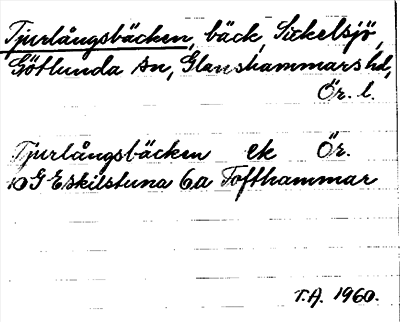 Tjurlångsbäcken, bäck, Sickelsjö,
Götlunda sn, Glanshammars hd,
Ör. l.
Tjurlångsbäcken ek Ör.
10G Eskilstuna 6a Tofthammar
T.A. 1960.